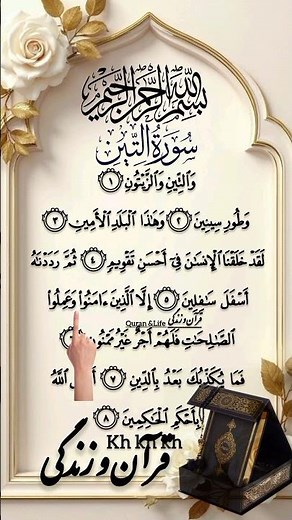 بسم الله الرحمن الرحيم
سُورَةُ التِّينِ
وَالتِّينِ وَالزَّيْتُونِ ١
وَطُورِ سِينِينَ ٢ وَهَٰذَا الْبَلَدِ الْأَمِينِ ٣
لَقَدْ خَلَقْنَا الْإِنسَٰنَ فِىٓ أَحْسَنِ تَقْوِيمٍ ٤ ثُمَّ رَدَدْنَٰهُ
أَسْفَلَ سَٰفِلِينَ ٥ إِلَّا الَّذِينَ ءَامَنُوا۟ وَعَمِلُوا۟
قرآن و زندگی
Quran &Life
الصَّٰلِحَٰتِ فَلَهُمْ أَجْرٌ غَيْرُ مَمْنُونٍ
فَمَا يُكَذِّبُكَ بَعْدُ بِالدِّينِ ٧ اللَّهُ
بِأَحْكَمِ الْحَٰكِمِينَ ٨
Kh kh kh
قرآن و زندگی